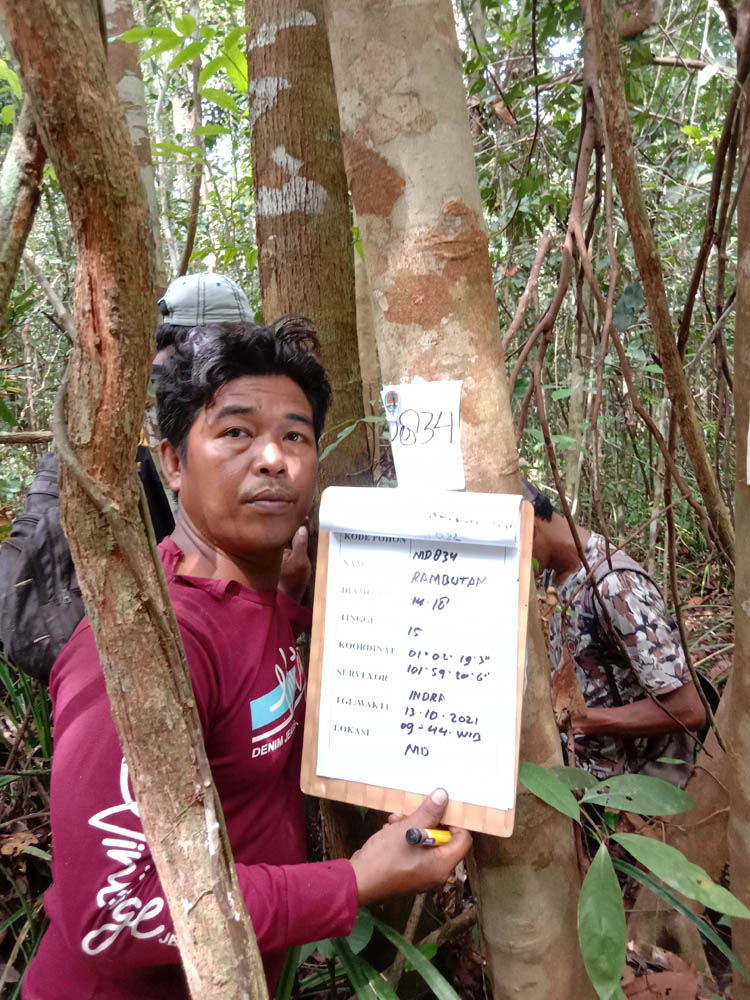 0834
KODE POHON MD834
NAMA RAMBUTAN
14.18
TINGGI 15
KOORDINAT 01°.02.19.3"
101°.59.20.6"
SURVEYOR INDRA
TGL/WAKTU 13.10.2021
09.44.WIB
LOKASI MD
DENIM JE
Vintage
JE